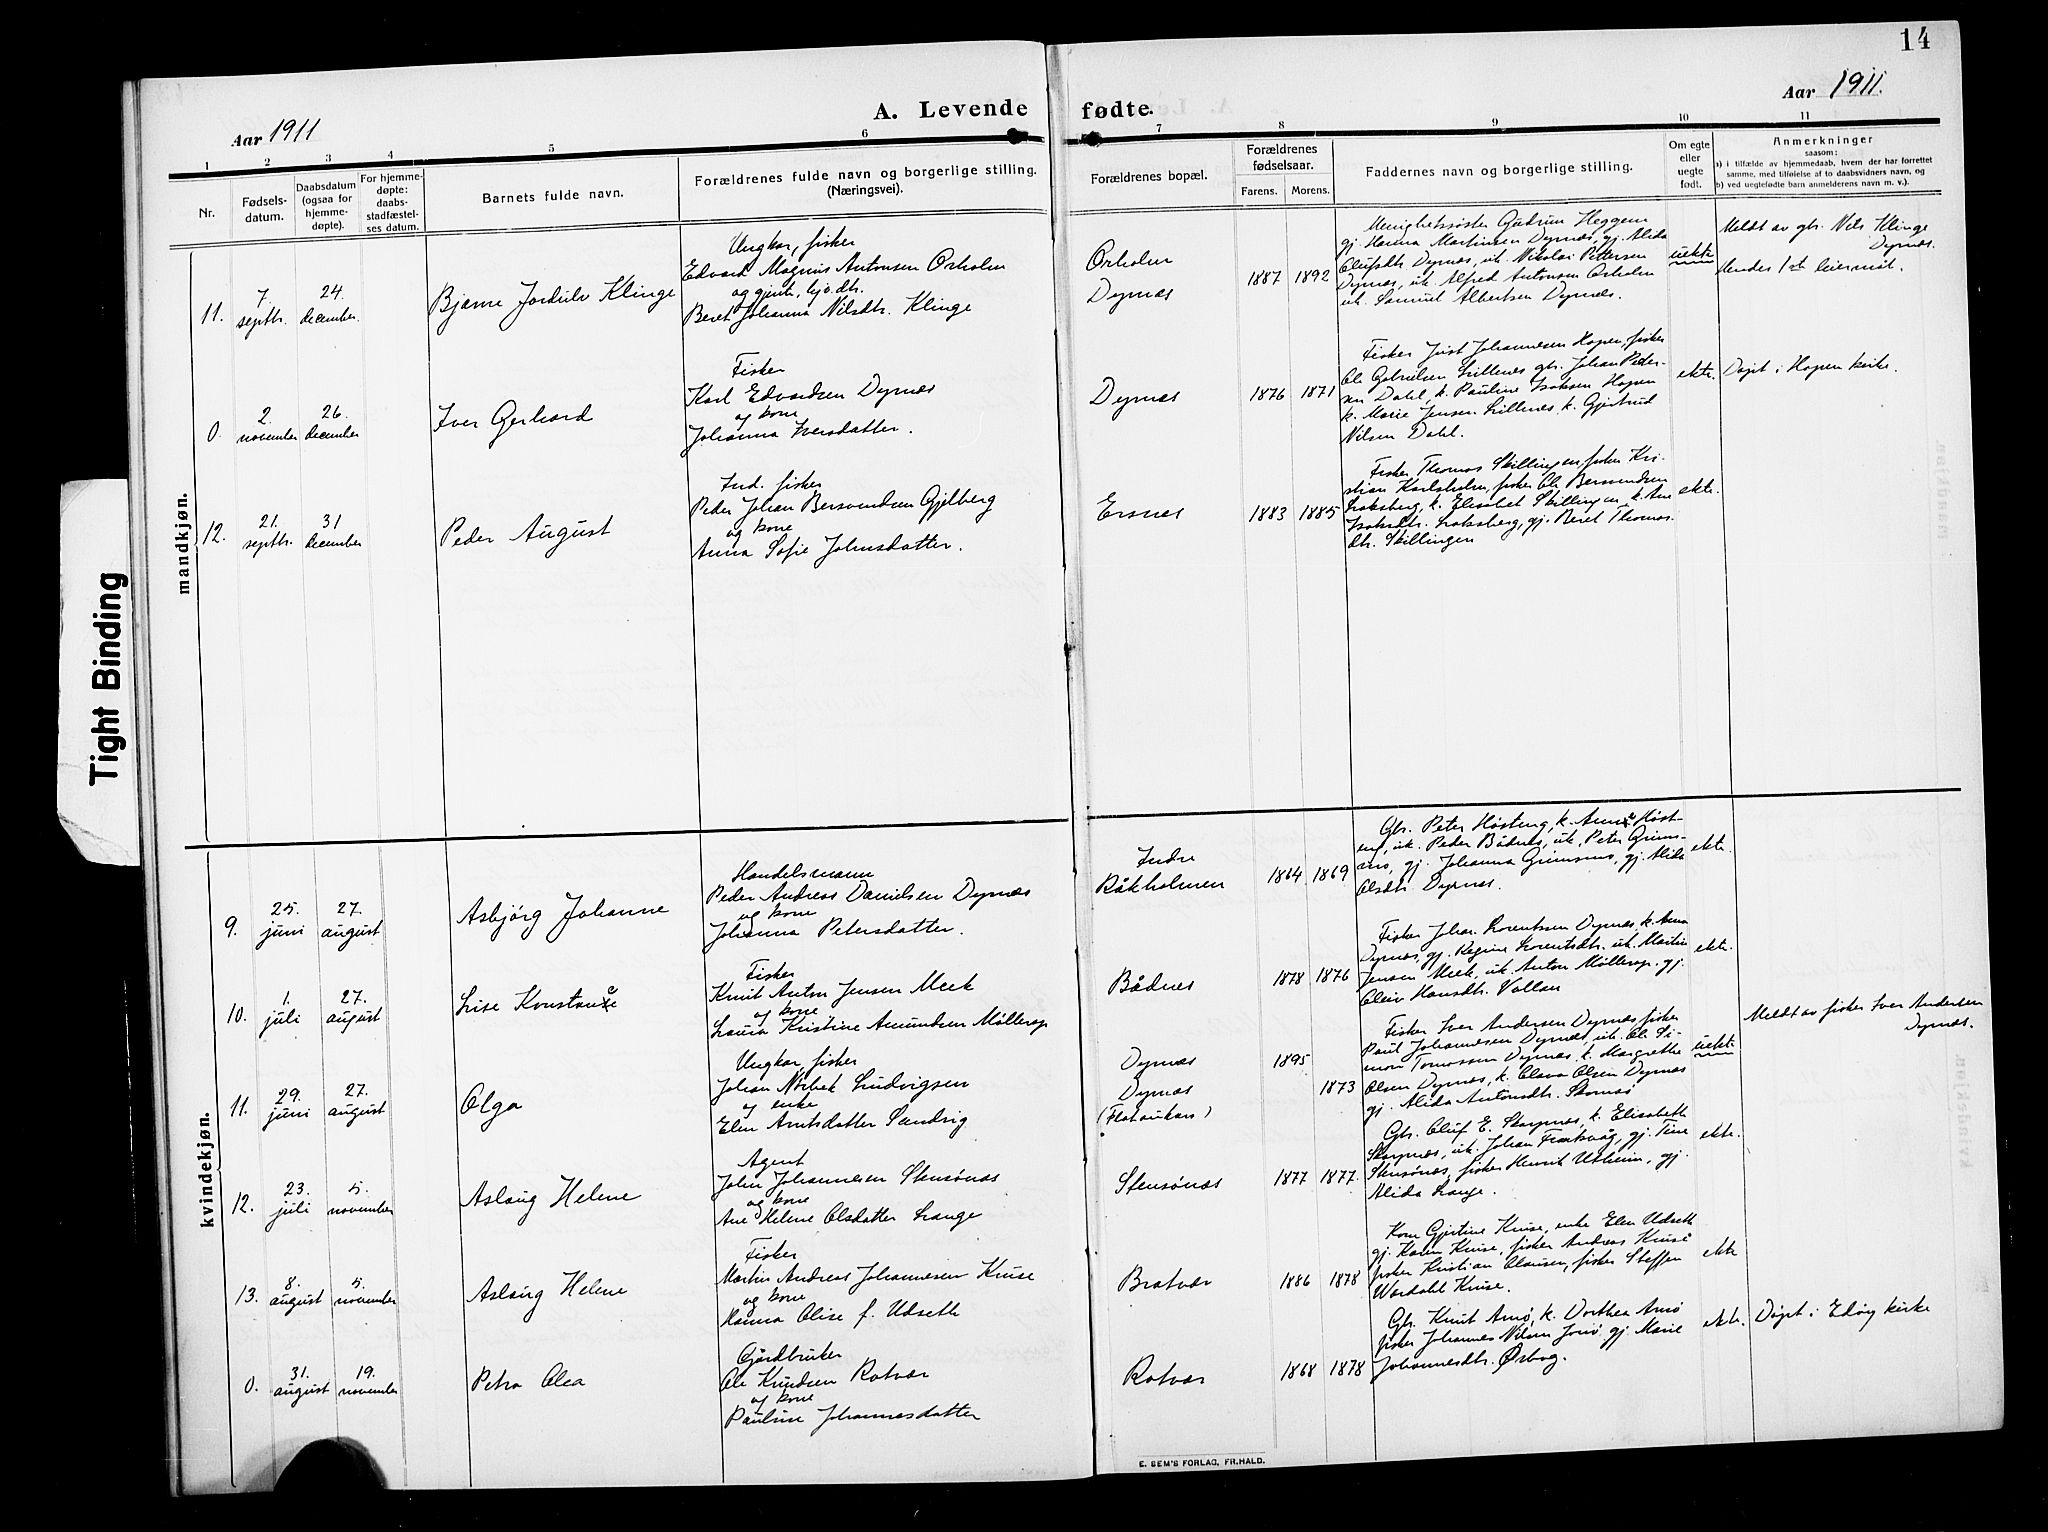 14
Aar 1911
Aar 1911.
A. Levende
fødte.
1 2 3 4 5 6
7 8 9 10 11
Nr.
Fødsels-
datum.
Daabsdatum
(ogsaa for
hjemme-
døpte).
For hjemme-
døpte:
daabs-
stadfæstel-
ses datum.
Barnets fulde navn.
Forældrenes fulde navn og borgerlige stilling.
(Næringsvei).
Forældrenes bopæl.
Forældrenes
fødselsaar.
Farens. Morens.
Faddernes navn og borgerlige stilling.
Om egte
eller
uegte
født.
Anmerkninger
saasom:
a) i tilfælde av hjemmedaab, hvem der har forrettet
samme, med tilføielse af to daabsvidners navn, og
b) ved uegtefødte barn anmelderens navn m. v.).
mandkjøn.
11.
7.
septbr.
24.
december.
Bjarne Jordulv Klinge
Ungkar, fisker
Edvard Magnus Antonsen Orholm
og gjente, hjo dtr.
Beret Johanna Nilsdtr. Klinge
Orholm
Dyrnæs
1887 1892
Menighetssøster Gudrun Heggem
gj. Hanna Martinsen Dyrnæs, gj. Alida
Olufsdtr. Dyrnæs, uk. Nikolai Pettersen
Dyrnæs, uk. Alfred Antonsen Orholm
uk. Samuel Albertsen Dyrnæs.
uekte
Meldt av gbr. Nils Klinge
Dyrnæs.
Hendes 1ste leiermål.
0.
2.
november
26.
december
Iver Gerhard
Fisker
Karl Edvardsen Dyrnæs
og kone
Johanna Iversdatter.
Dyrnæs
1876 1871
Fisker Just Johannesen Hopen, fisker
Ole Gabrielsen Lillenes gbr. Johan Peder-
sen Dahl, k. Pauline Isaksen Hopen
k. Marie Jensen Lillenæs, k. Gjertrud
Nilsen Dahl.
ekte.
Døpt i Hopen kirke.
12.
21.
septbr.
31
december
Peder August
Ind. fisker
Peder Johan Bersvendsen Gjelberg
og kone
Anna Sofie Johnsdatter.
Ersnes
1883 1885
Fisker Thomas Skillingen, fisker Kri-
stian Karlsholm, fisker Ole Bersvendsen
Loksberg, k. Elisabet Skillingen k. Ane
Isaksdtr. Loksberg, gj. Beret Thomas-
dtr. Skillingen
ekte.
kvindekjøn.
9.
25.
juni
27.
august
Asbjørg Johanne
Handelsmann
Peder Andreas Danielsen Dyrnæs
og kone
Johanna Petersdatter.
Indre
Råkholmen
1864 1869
Gbr. Peter Høsteng, k. Anna Høst-
eng, uk. Peder Bådnes, uk. Peter Grims-
mo, gj. Johanna Grimsmo, gj. Alida
Olsdtr. Dyrnæs.
ekte.
10.
1.
juli
27.
august
Lise Konstance
Fisker
Knut Anton Jensen Meek
og kone
Laura Kristine Amundsen Møllerop
Bådnes
1878 1876
Fisker Johan Lorentssen Dyrnæs, k. Anna
Dyrnæs, gj. Regine Lorentsdtr. uk. Martin
Jensen Meek, uk. Anton Møllerop. gj.
Oleiv Hansdtr. Vollan
ekte.
11.
29.
juni
27.
august
Olga
Ungkar, fisker
Johan Norbek Ludvigsen
og enke
Elen Arntsdatter Sandvig
Dyrnæs
Dyrnæs
(Flataukan)
1895
1873
Fisker Iver Andersen Dyrnæs, fisker
Paul Johannesen Dyrnæs, uk. Ole Si-
mon Tomassen Dyrnæs, k. Margrethe
Olsen Dyrnæs, k. Olava Olsen Dyrnæs
gj. Alida Antonsdtr. Stomsø
uekte
Meldt av fisker Iver Andersen
Dyrnæs.
12.
23.
juli
5.
november
Aslaug Helene
Agent
John Johannesen Stensönæs
og kone
Ane Helene Olsdatter Lange
Stensönæs
1877 1877.
Gbr. Oluf E. Skarpnæs, k. Elisabeth
Skarpnæs, uk. Johan Frostvåg, gj. Tine
Stensönæs, fisker Henrik Utheim, gj.
Alida Lange.
ekte.
13.
8.
august
5.
november
Aslaug Helene
Fisker
Martin Andreas Johannesen Kruse
og kone
Hanna Olise f. Udseth
Bratvær
1886 1878
Kone Gjertine Kruse, enke Elen Udseth
gj. Karen Kruse, fisker Andreas Kruse
fisker Kristian Clausen, fisker Steffen
Wardahl Kruse.
ekte
0.
31.
august
19.
november
Petra Olea
Gårdbruker
Ole Knudsen Rotvær
og kone
Pauline Johannesdatter
Rotvær
1868 1878
Gbr. Knut Arnø, k. Dorthea Arnø
fisker Johannes Nilsen Jørsø gj. Marie
Johannesdtr. Ørbog.
ekte.
Døpt i Edøy kirke
E. SEM'S FORLAG, FR.HALD.
Tight Binding